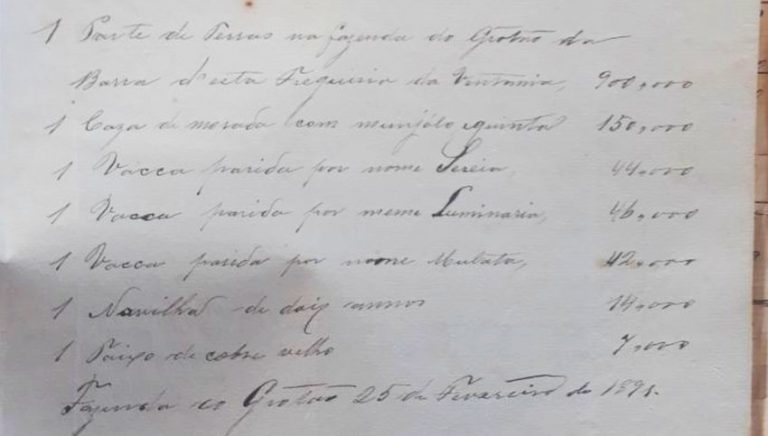 1 Parte de Terras na fazenda do Grotão da
Barra d'esta Freguesia da Ventania, 900,000
1 Caza de morada com munjólo equintal 150,000
1 Vacca parida por nome Sereia, 44,000
1 Vacca parida por nome Luminaria, 46,000
1 Vacca parida por nome Mulata, 42,000
1 Navilha de dois annos 14,000
1 Taixo de cobre velho 7,000
Fazenda do Grotão 25 de Fevereiro de 1891.